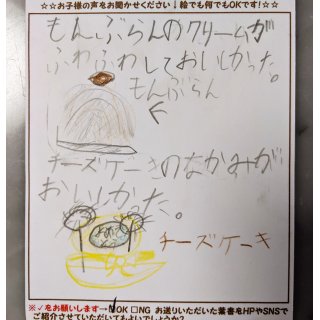 ☆☆お子様の声をお聞かせください↓絵でも何でもOKです!☆☆
もんぶらんのクリームが
ふわふわしておいしかった。
もんぶらん
チーズケーキのなかみが
おいしかった。
チーズケーキ
※✓をお願いします→☑OK □NG お送りいただいた葉書をHPやSNSで
ご紹介させていただいてもよいでしょうか?